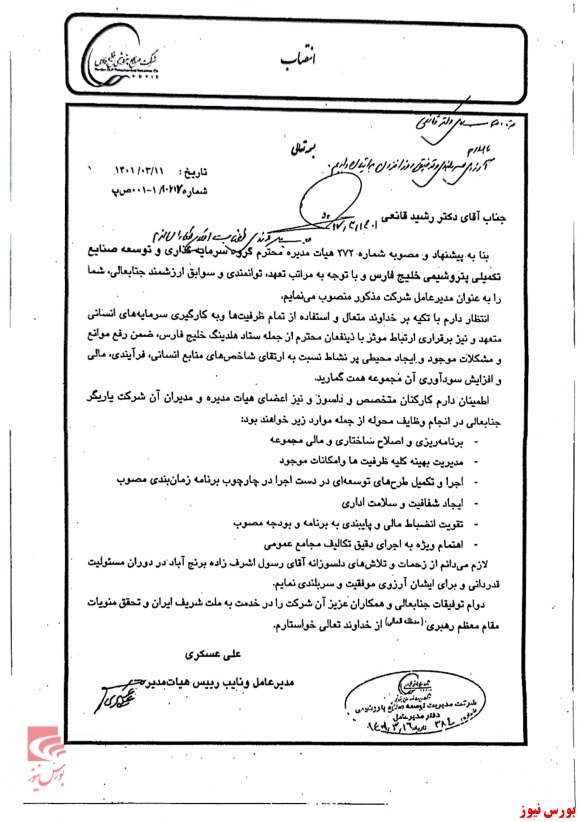 انتصاب
شرکت صنایع پتروشیمی خلیج فارس
بسمه تعالی
تاریخ : ۱۴۰۱/۰۳/۱۱
شماره
جناب آقای دکتر رشید قانعی
بنا به پیشنهاد و مصوبه شماره ۲۷۲ هیات مدیره محترم گروه سرمایه گذاری و توسعه صنایع
تکمیلی پتروشیمی خلیج فارس و با توجه به مراتب تعهد، توانمندی و سوابق ارزشمند جنابعالی، شما
را به عنوان مدیرعامل شرکت مذکور منصوب می‌نمایم.
انتظار دارم با تکیه بر خداوند متعال و استفاده از تمام ظرفیت‌ها وبه کارگیری سرمایه‌های انسانی
متعهد و نیز برقراری ارتباط موثر با ذینفعان محترم از جمله ستاد هلدینگ خلیج فارس، ضمن رفع موانع
و مشکلات موجود و ایجاد محیطی پر نشاط نسبت به ارتقای شاخص‌های منابع انسانی، فرآیندی، مالی
و افزایش سودآوری آن مجموعه همت گمارید.
اطمینان دارم کارکنان متخصص و دلسوز و نیز اعضای هیات مدیره و مدیران آن شرکت یاریگر
جنابعالی در انجام وظایف محوله از جمله موارد زیر خواهند بود:
- برنامه‌ریزی و اصلاح ساختاری و مالی مجموعه
- مدیریت بهینه کلیه ظرفیت ها وامکانات موجود
- اجرا و تکمیل طرح‌های توسعه‌ای در دست اجرا در چارچوب برنامه زمان‌بندی مصوب
- ایجاد شفافیت و سلامت اداری
- تقویت انضباط مالی و پایبندی به برنامه و بودجه مصوب
- اهتمام ویژه به اجرای دقیق تکالیف مجامع عمومی
لازم می‌دانم از زحمات و تلاش‌های دلسوزانه آقای رسول اشرف زاده برنج آباد در دوران مسئولیت
قدردانی و برای ایشان آرزوی موفقیت و سربلندی نمایم.
دوام توفیقات جنابعالی و همکاران عزیز آن شرکت را در خدمت به ملت شریف ایران و تحقق منویات
مقام معظم رهبری (مدظله العالی) از خداوند تعالی خواستارم.
علی عسکری
مدیرعامل ونایب رییس هیات‌مدیره
شرکت مدیریت توسعه صنایع پتروشیمی
دفتر مدیرعامل
بورس نیوز
بورس نیوز